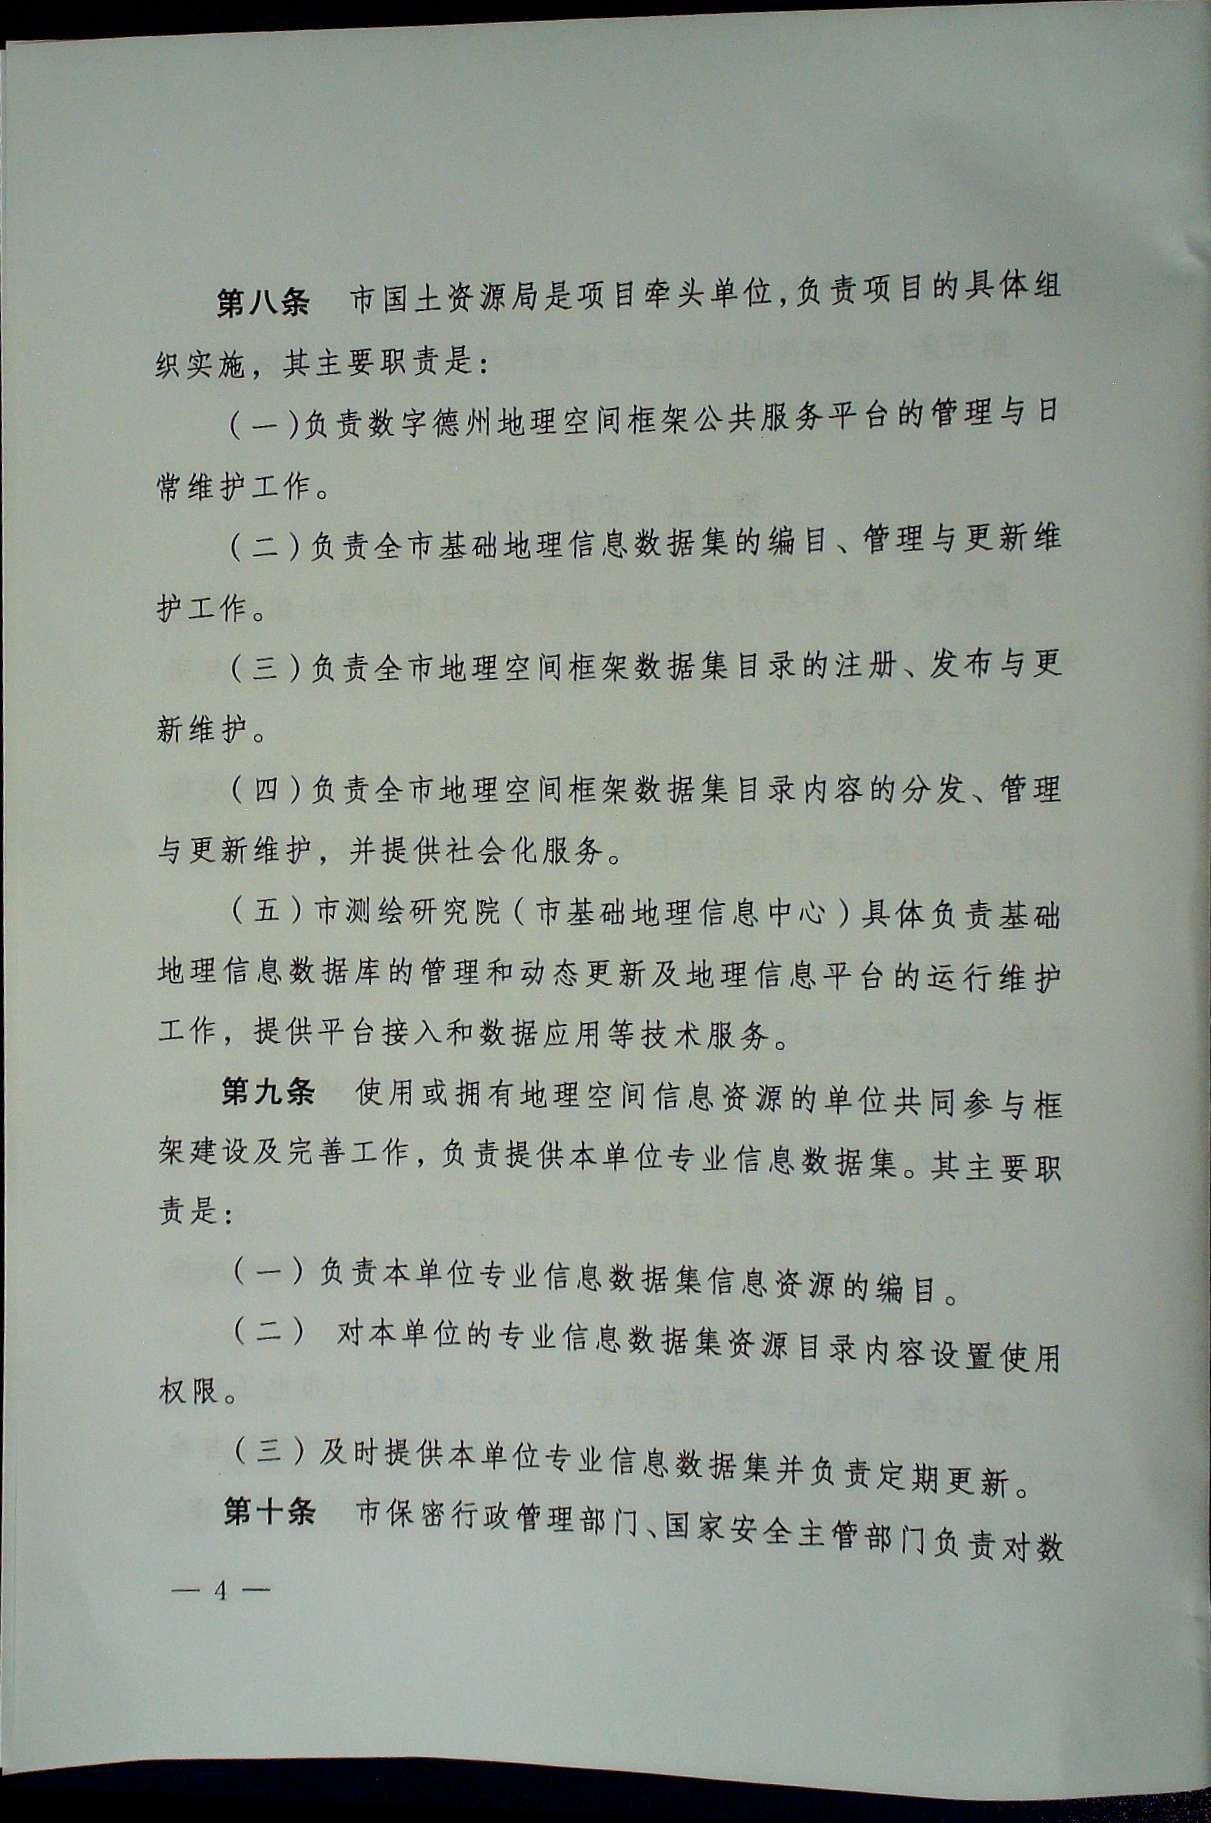 第八条　市国土资源局是项目牵头单位,负责项目的具体组
织实施，其主要职责是：
（一)负责数字德州地理空间框架公共服务平台的管理与日
常维护工作。
（二）负责全市基础地理信息数据集的编目、管理与更新维
护工作。
（三）负责全市地理空间框架数据集目录的注册、发布与更
新维护。
（四）负责全市地理空间框架数据集目录内容的分发、管理
与更新维护，并提供社会化服务。
（五）市测绘研究院（市基础地理信息中心）具体负责基础
地理信息数据库的管理和动态更新及地理信息平台的运行维护
工作，提供平台接入和数据应用等技术服务。
第九条　使用或拥有地理空间信息资源的单位共同参与框
架建设及完善工作，负责提供本单位专业信息数据集。其主要职
责是：
（一）负责本单位专业信息数据集信息资源的编目。
（二） 对本单位的专业信息数据集资源目录内容设置使用
权限。
（三）及时提供本单位专业信息数据集并负责定期更新。
第十条　市保密行政管理部门、国家安全主管部门负责对数
— 4 —